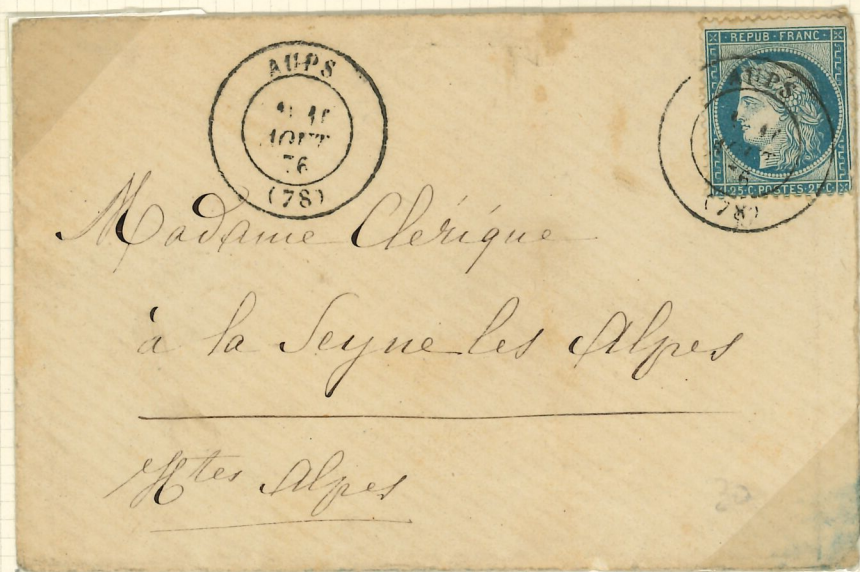 AUPS
11
AOUT
76
(78)
REPUB·FRANC·
AUPS
76
(78)
25·C·POSTES·25·C
Madame Clérique
à la Seyne les Alpes
Htes Alpes
30